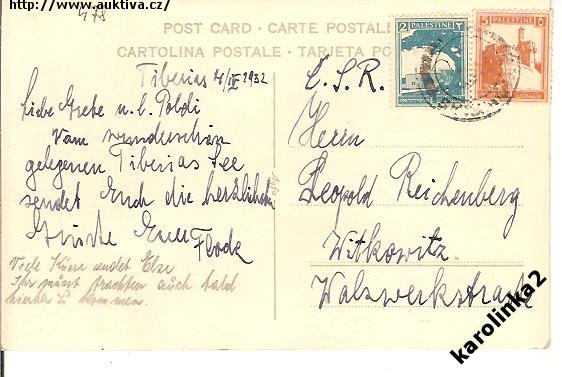 http://www.auktiva.cz/
478
POST CARD - CARTE POSTALE
CARTOLINA POSTALE - TARJETA PO
2 PALESTINE ٢
5 PALESTINE ٥
Tiberias 4/IV 1932
Liebe Grete u. l. Poldi
Vom wunderschön
gelegenen Tiberias See
sendet Euch die herzlichen
Grüsse Euer
Viele Küsse sendet Else
Ihr müsst trachten auch bald
hierher zu kommen.
Č. S. R.
Herrn
Leopold Reichenberg
Witkowitz
Walzwerkstrasse
karolinka2